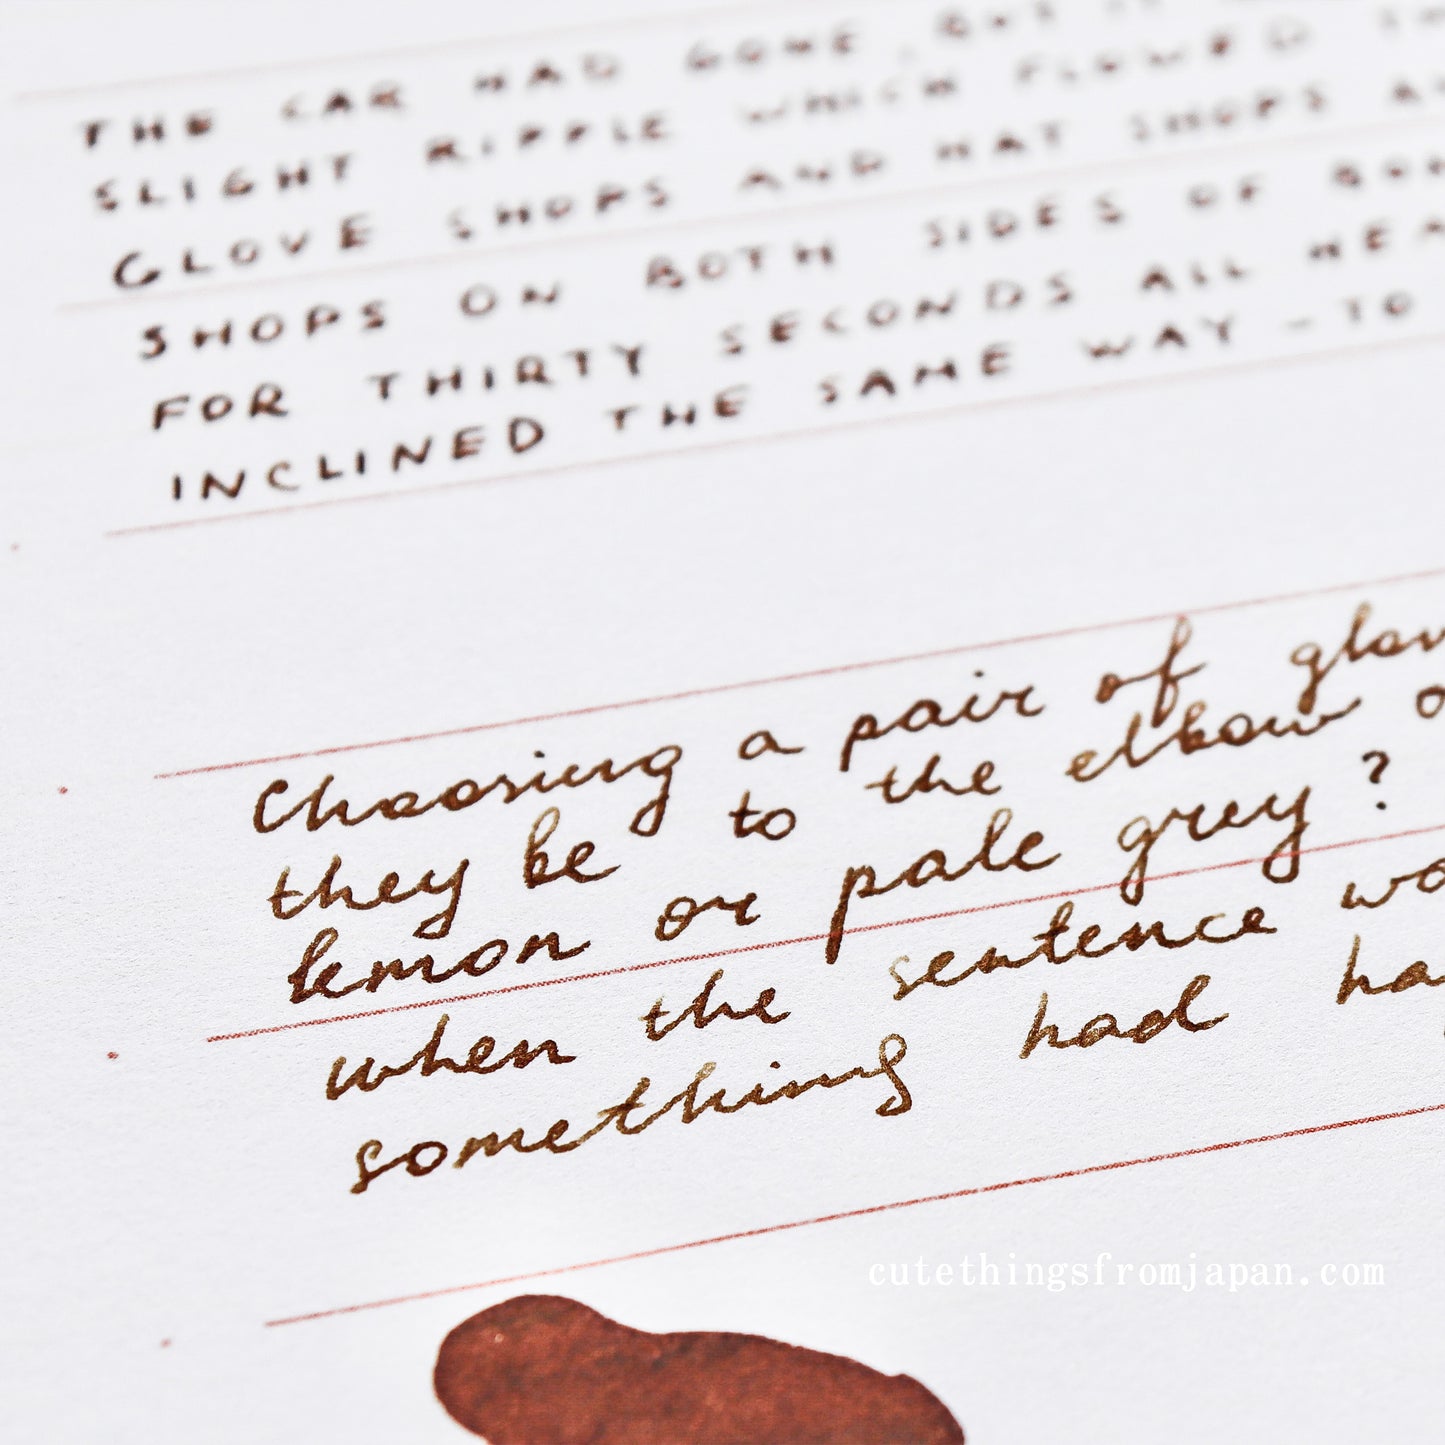 THE CAR HAD GONE, BUT IT
SLIGHT RIPPLE WHICH FLOWED TH
GLOVE SHOPS AND HAT SHOPS A
SHOPS ON BOTH SIDES OF BON
FOR THIRTY SECONDS ALL HEA
INCLINED THE SAME WAY - TO
Choosing a pair of glov
they be to the elbow o
lemon or pale grey?
when the sentence wa
something had ha
cutethingsfromjapan.com